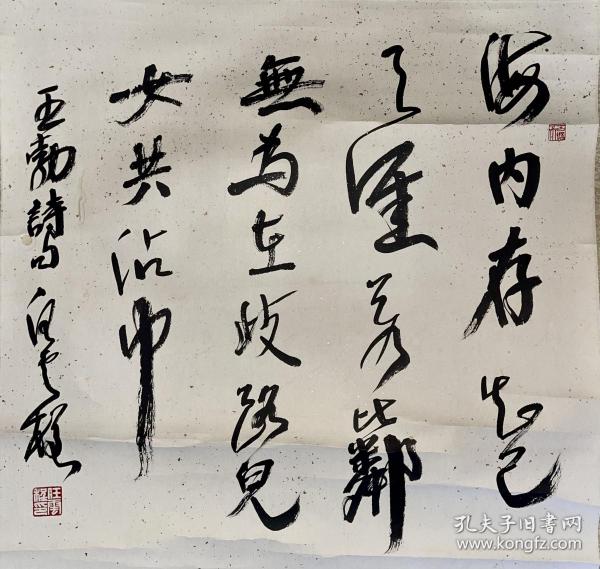 海内存知己
天涯若比鄰
無為在歧路兒
女共沾巾
王勃詩句
孔夫子旧书网
www.kongfz.com